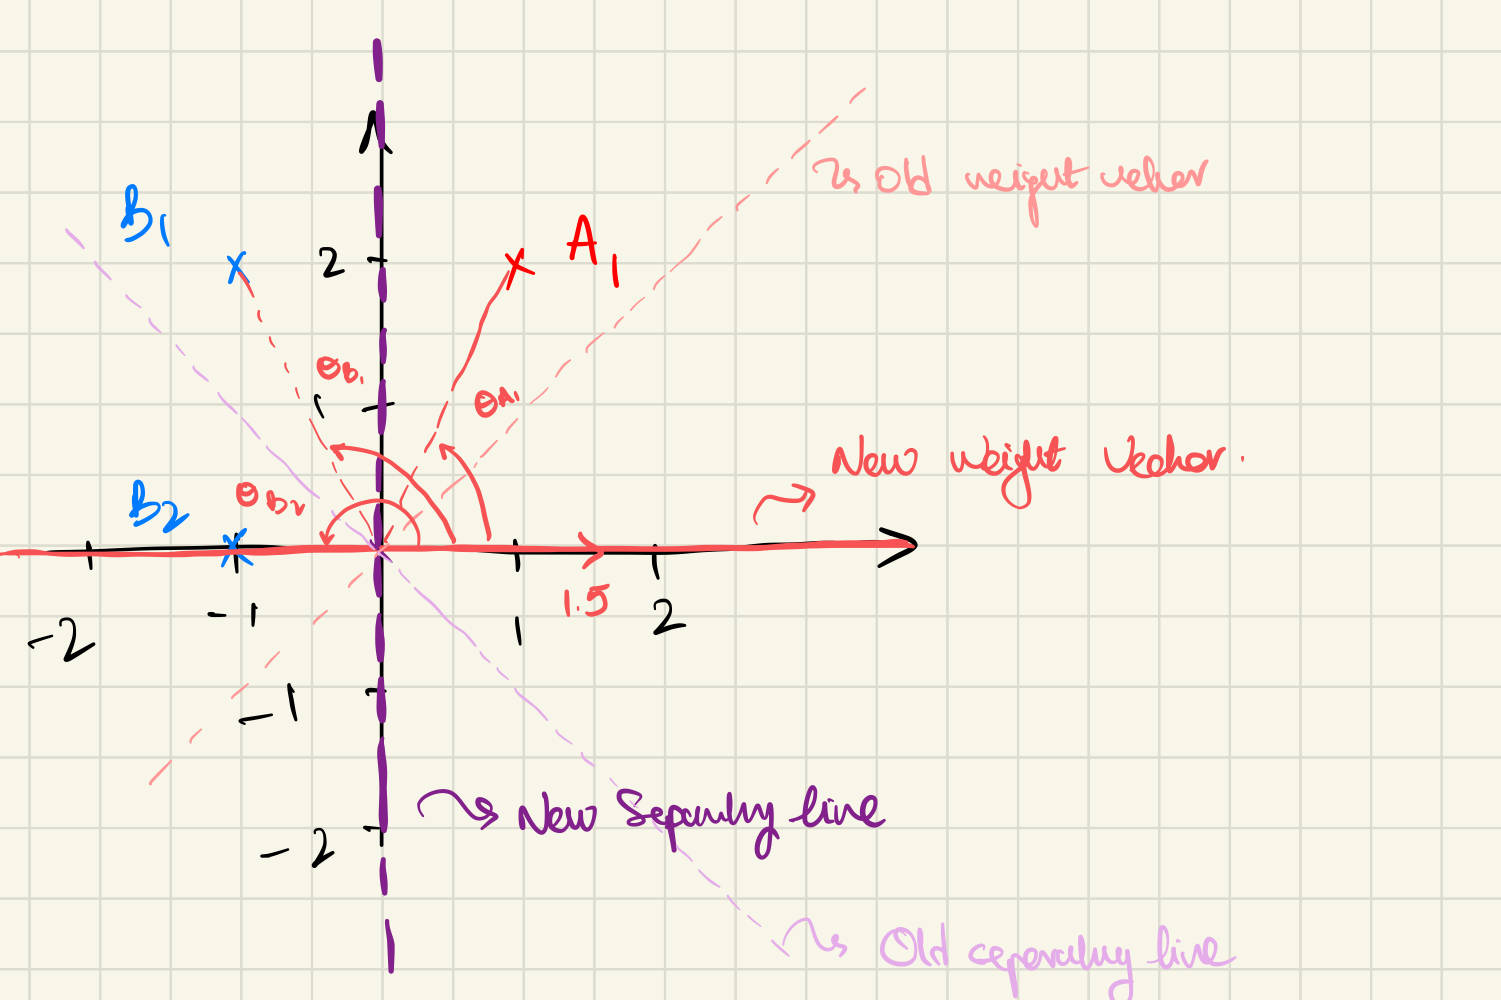 Old weight vector
B1
A1
2
θB1
1
θA1
New Weight Vector.
B2
θB2
-2
-1
1
1.5
2
-1
New Separating line
-2
Old separating line